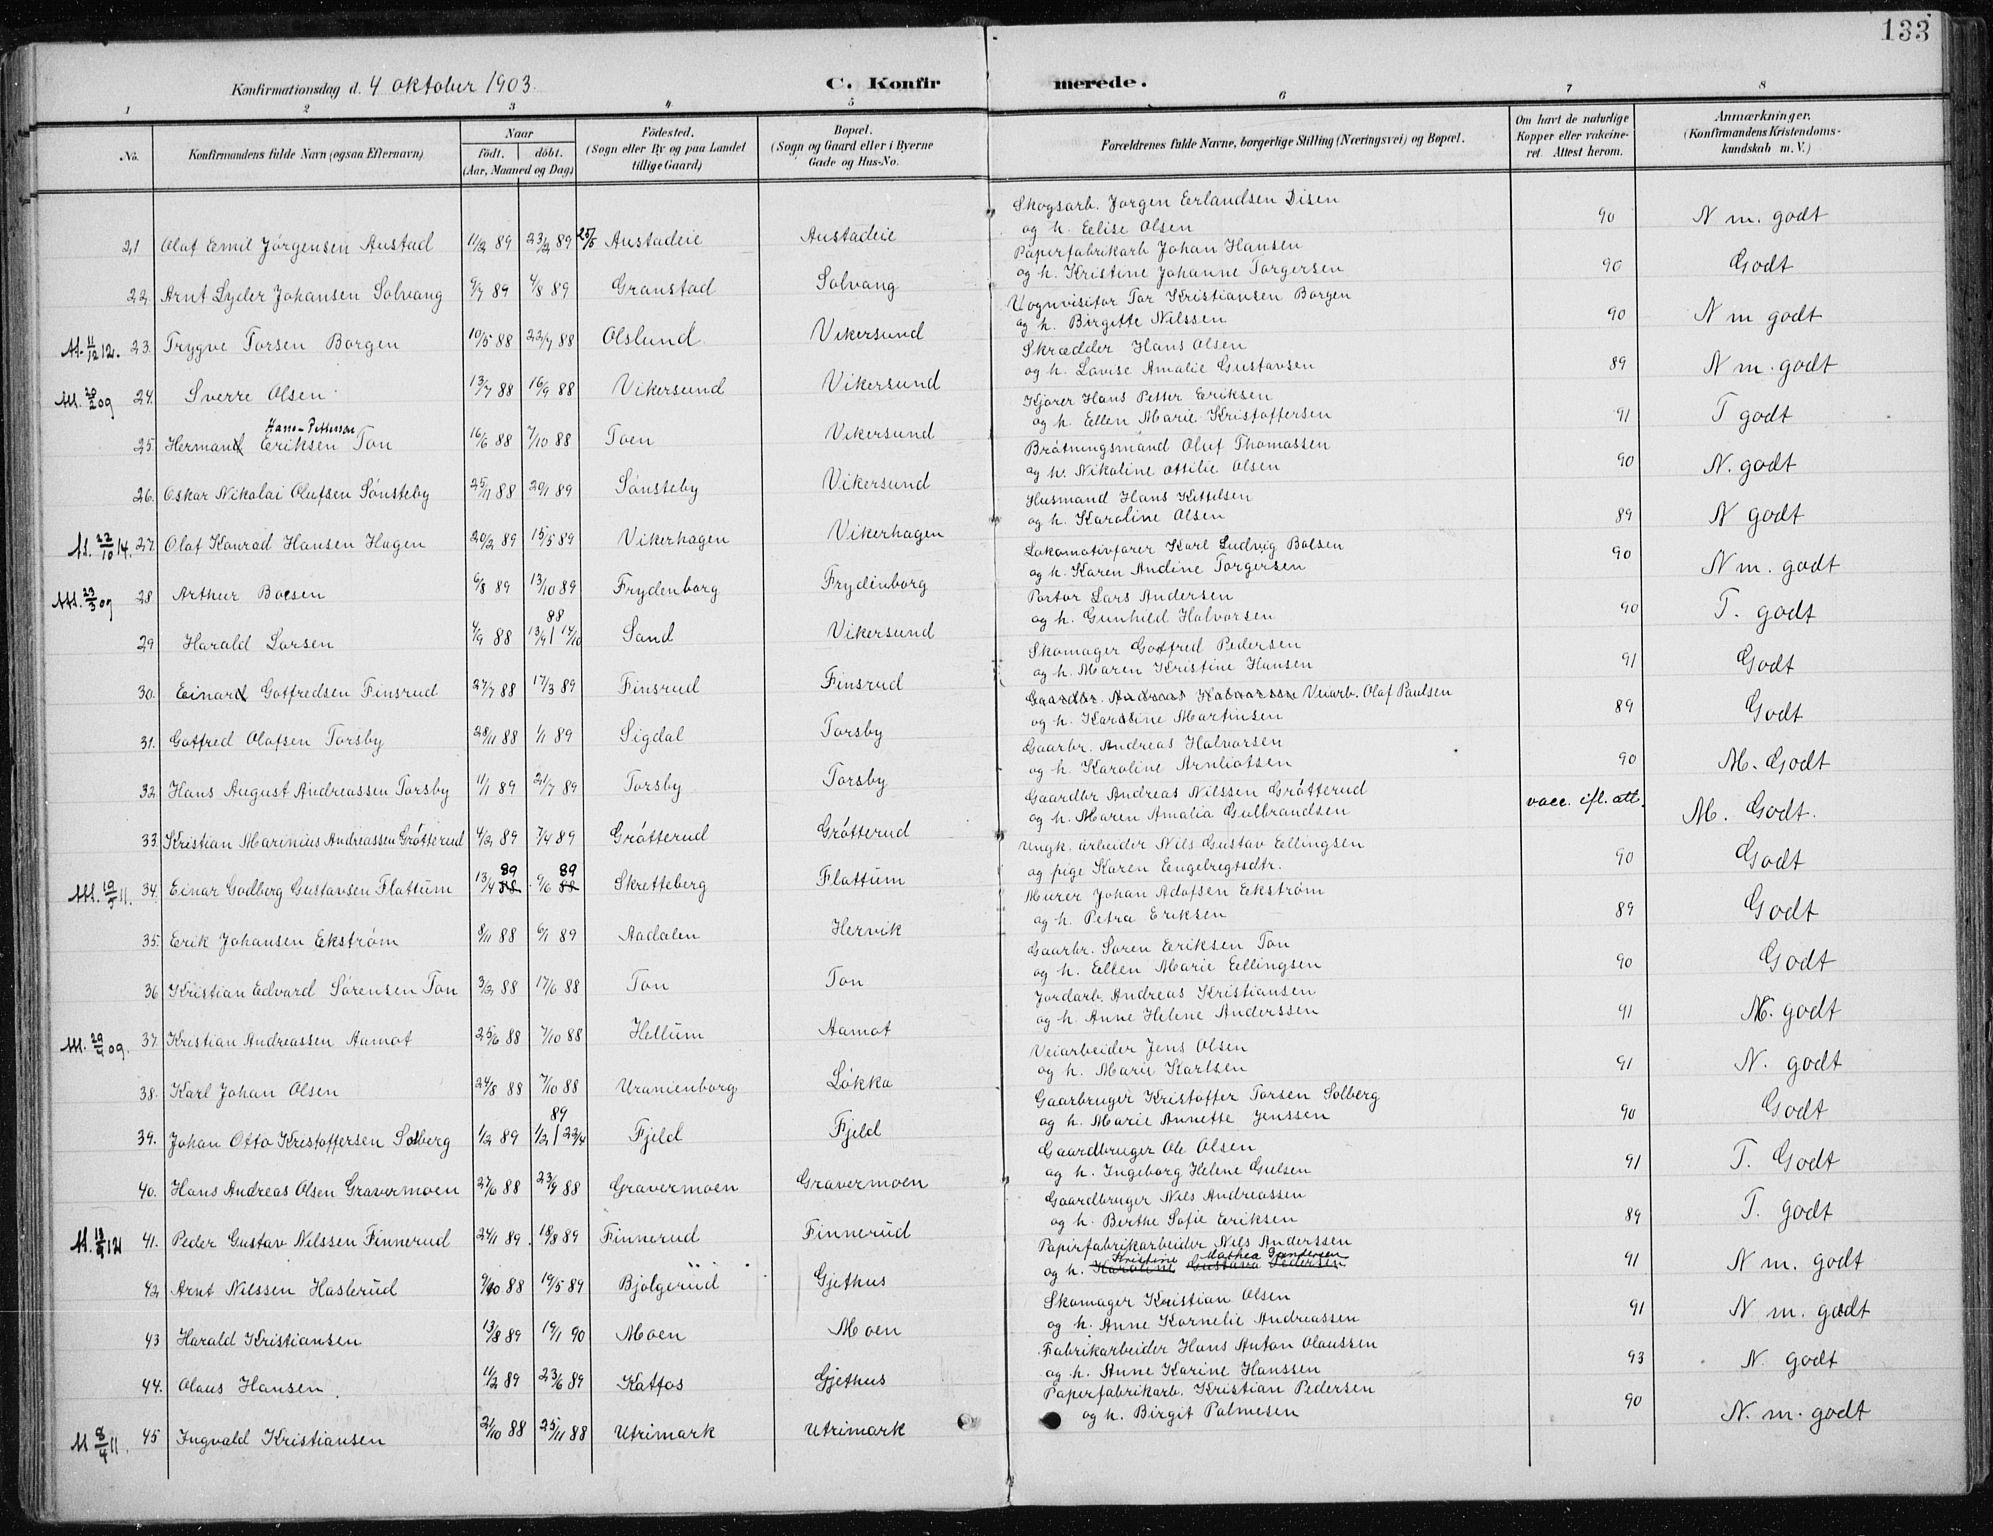 133
Konfirmationsdag d. 4 oktober 1903.
C. Konfirmerede.
1 2 3 4 5 6 7 8
No. Konfirmandens fulde Navn (ogsaa Efternavn) Naar Født. døbt. (Aar, Maaned og Dag) Fødested. (Sogn eller By og paa Landet tillige Gaard) Bopæl. (Sogn og Gaard eller i Byerne Gade og Hus-No. Forældrenes fulde Navne, borgerlige Stilling (Næringsvei) og Bopæl. Om havt de naturlige Kopper eller vakcineret. Attest herom. Anmærkninger. (Konfirmandens Kristendomskundskab m. V.)
21 Olaf Emil Jørgensen Austad 11/2 89 23/2 89 25/5 Austadeie Austadeie Skogsarb. Jørgen Erlandsen Disen og h. Elise Olsen 90 N m. godt
22. Arnt Lyder Johansen Solvang 9/7 89 4/8 89 Granstad Solvang Papirfabrikarb Johan Hansen og h. Kristine Johanne Torgersen 90 Godt
Att. 11/12 12. 23. Trygve Torsen Borgen 10/5 88 22/7 88 Olslund Vikersund Vognvisitør Tor Kristiansen Borgen og h. Birgitte Nilssen 90 N m godt
Att. 20/2 09 24. Sverre Olsen 13/7 88 16/9 88 Vikersund Vikersund Skrædder Hans Olsen og h. Lovise Amalie Gustavsen 89 N m. godt
25. Herman Hans-Petterson Eriksen Ton 16/6 88 7/10 88 Toen Vikersund Kjører Hans Petter Eriksen og h. Ellen Marie Kristoffersen 91 T godt
26. Oskar Nikolai Olufsen Sønsteby 25/11 88 20/1 89 Sønsteby Vikersund Bråtningsmand Oluf Thomassen og h. Nikoline Ottilie Olsen 90 N. godt
Att. 22/10 14. 27. Olaf Konrad Hansen Hagen 20/2 89 15/5 89 Vikerhagen Vikerhagen Husmand Hans Kittilsen og h. Karoline Olsen 89 N godt
Att. 23/3 09 28 Arthur Boesen 6/8 89 13/10 89 Frydenborg Frydenborg Lokomotivfører Karl Ludvig Boesen og h. Karen Andine Torgersen 90 N m. godt
29 Harald Larsen 4/9 88 13/9 88 | 14/10 Sand Vikersund Portør Lars Andersen og h. Gunhild Halvorsen 90 T. godt
30. Einar Gotfredsen Finsrud 27/7 88 17/3 89 Finsrud Finsrud Skomager Gotfred Pedersen og h. Maren Kristine Hansen 91 Godt
31. Gotfred Olafsen Torsby 28/11 88 1/1 89 Sigdal Torsby Gaardbr. Andreas Halvorsen Veiarb. Olaf Paulsen og h. Karoline Martinsen 89 Godt
32. Hans August Andreassen Torsby 11/1 89 21/7 89 Torsby Torsby Gaarbr. Andreas Halvorsen og h. Karoline Arnliotsen 90 M. Godt
33. Kristian Marinius Andreassen Grøtterud 4/2 89 7/4 89 Grøtterud Grøtterud Gaardbr Andreas Nilssen Grøtterud og h. Maren Amalia Gulbrandsen vacc. ifl. att. M. Godt.
Att. 10/5 11. 34. Einar Godberg Gustavsen Flattum 13/4 88 89 9/6 88 89 Skretteberg Flattum Ungk. arbeider Nils Gustav Ellingsen og pige Karen Engelregtsdtr. 90 Godt
35. Erik Johansen Ekstrøm 8/11 88 6/1 89 Aadalen Hervik Murer Johan Adofsen Ekstrøm og h. Petra Eriksen 89 Godt
36 Kristian Edvard Sørensen Ton 3/2 88 17/6 88 Ton Ton Gaarbr. Søren Eriksen Ton og h. Ellen Marie Ellingsen 90 Godt
Att. 29/4 09. 37. Kristian Andreassen Aamot 25/6 88 7/10 88 Hellum Aamot Jordarb. Andreas Kristiansen og h. Anne Helene Anderssen 91 M. godt
38. Karl Johan Olsen 24/8 88 7/10 88 Uranienborg Løkka Veiarbeider Jens Olsen og h. Marie Karlsen 91 N. godt
39. Johan Otto Kristoffersen Solberg 1/2 89 1/2 89 | 22/4 Fjeld Fjeld Gaarbruger Kristoffer Torsen Solberg og h. Marie Annette Jenssen 90 Godt
40. Hans Andreas Olsen Gravermoen 27/6 88 23/9 88 Gravermoen Gravermoen Gaardbruger Ole Olsen og h. Ingeborg Helene Gulsen 91 T. Godt
Att. 12 41. Peder Gustav Nilssen Finnerud 24/1 89. 18/8 89 Finnerud Finnerud Gaardbruger Nils Andreassen og h. Berthe Sofie Eriksen 89 T. godt
42. Arnt Nilssen Haslerud 9/10 88 19/5 89 Bjølgerud Gjethus Papirfabrikarbeider Nils Anderssen og h. Karoline Gustava Pedersen Kristine Mathea Gundersen 91 N m. godt
43 Harald Kristiansen 13/8 89 19/1 90 Moen Moen Skomager Kristian Olsen og h. Anne Kornelie Andreassen 91 N. m. godt
44. Olaus Hansen. 11/2 89 23/6 89 Katfos Gjethus Fabrikarbeider Hans Anton Olaussen og h. Anne Karine Hanssen 93 N. godt
Att 8/4 11. 45 Ingvald Kristiansen 21/10 88 25/11 88 Utrimark Utrimark Papirfabrikarb. Kristian Pedersen og h. Birgit Palmesen 90 N. m. godt